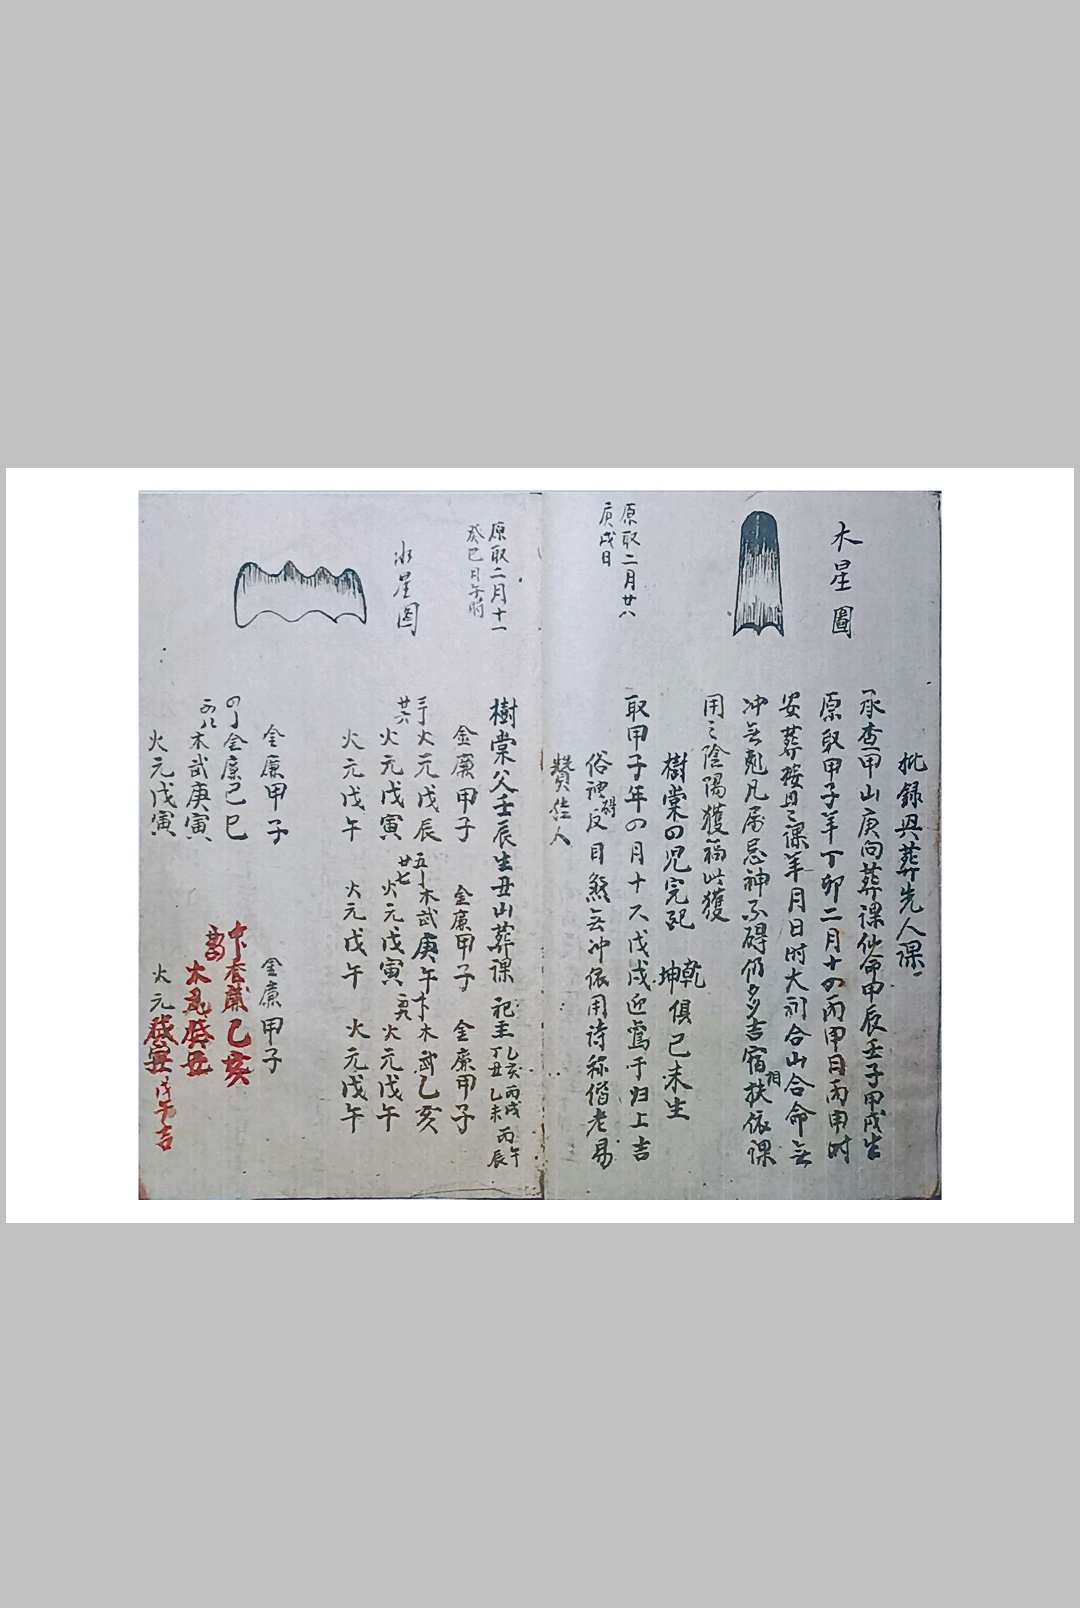 木星圖
批録與葬先人課
承查甲山庚向葬課仙命甲辰壬子甲戌生
原取甲子年丁卯二月十四丙申日丙申时
安葬按此課年月日时大利合山合命无
冲无尅凡屬忌神不碍仍多吉宿扶依課
相
用之陰陽獲福
原取二月廿八
庚戌日
樹棠四児完配乾坤俱己未生
取甲子年四月十六戊戌迎鸞于归上吉
俗神反目煞无冲依用诗称偕老易
碍
贊佳人
原取二月十一
癸巳日午时
水星圖
樹棠父壬辰生丑山葬課 祀主丁丑乙亥乙未丙戌丙辰丙午
金廉甲子 金廉甲子 金廉甲子
火元戊辰 木武庚午 木武乙亥
廿六火元戊寅 廿七火元戊寅 火元戊午
火元戊午 火元戊午 火元戊午
金廉甲子 金廉甲子
金廉己巳 乙亥
木武庚寅
火元戊寅 火元 戊午吉